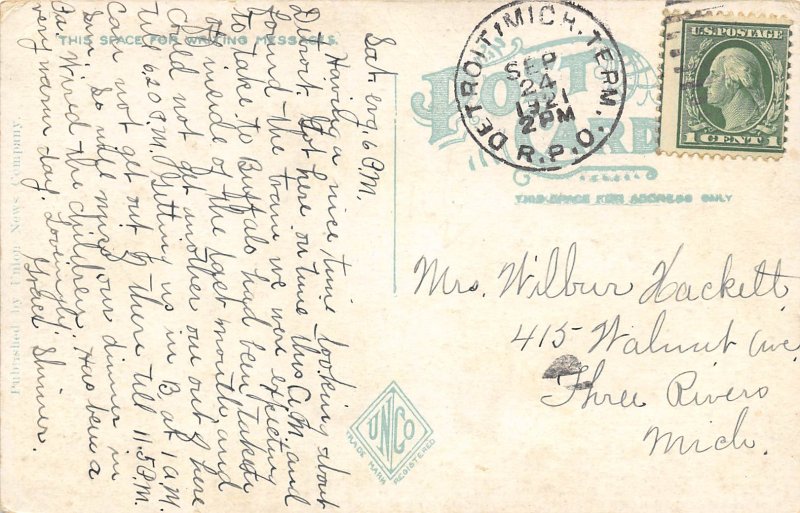 THIS SPACE FOR WRITING MESSAGES
Sat. evg. 6 P.M.
Having a nice time looking about
Detroit. Got here on time this A.M. and
found the train we were expecting
to take to Buffalo had been taken
off inside of the last month and
could not get another one out of here
till 6.20 P.M. getting us in B. at 1 A.M.
Can not get out of there till 11.5 P.M.
Sun. So will miss our dinner in
Wired the children. Has been a
very warm day. Lovingly,
Grace
Published by Union News Company.
POST CARD
THIS SPACE FOR ADDRESS ONLY
DETROIT, MICH. TERM. R.P.O.
SEP
24
1921
2 PM
U.S. POSTAGE
1 CENT 1
Mrs. Wilbur Hackett
415 Walnut Ave
Three Rivers
Mich.
UNCo
TRADE MARK REGISTERED